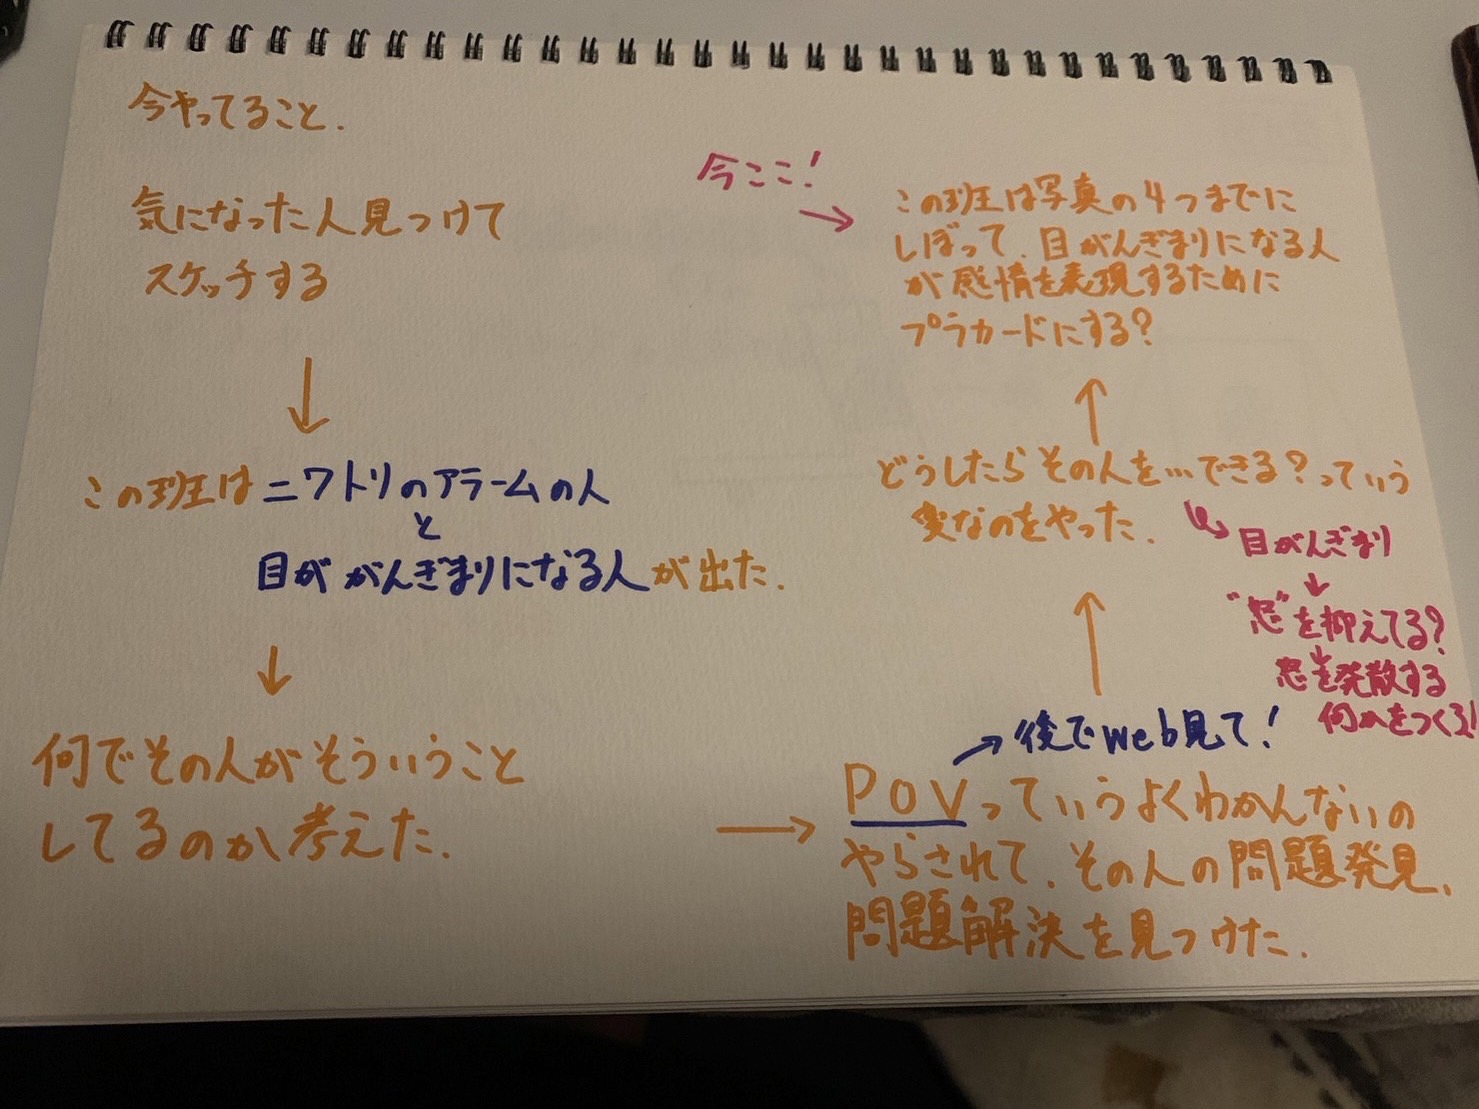 今やってること.
気になった人見つけて
スケッチする
↓
この班はニワトリのアラームの人
と
目ががんぎまりになる人が出た.
↓
何でその人がそういうこと
してるのか考えた.
→
→後でweb見て!
POVっていうよくわかんないの
やらされて、その人の問題発見、
問題解決を見つけた.
↑
どうしたらその人を…できる?っていう
変なのをやった.
目がんぎまり
↓
"怒"を抑えてる?
↓
怒を発散する
何かをつくる!
↑
今ここ!
→
この班は写真の4つまでに
しぼって、目がんぎまりになる人
が感情を表現するために
プラカードにする?